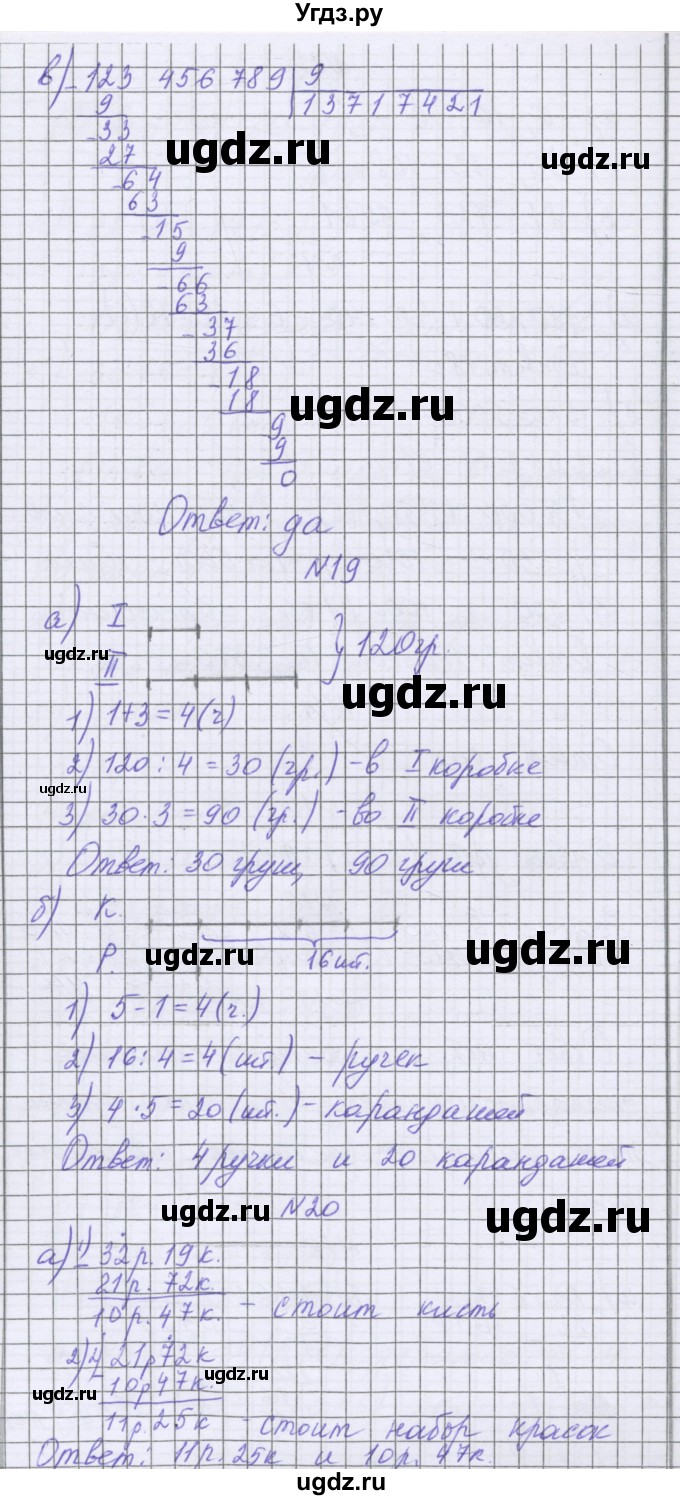 Угдз.ру
в) -123 456 789 | 9
9 13717421
-33 ugdz.ru ugdz.ru
27
-64
63
-15
9
-66
63
-37
36
-18
18 ugdz.ru
9
9
0
Ответ: да
N19
а) I } 120гр.
ugdz.ru
II ugdz.ru
1) 1+3=4(ч)
2) 120 : 4 = 30 (гр.) - в I коробке
ugdz.ru
3) 30 · 3 = 90 (гр.) - во II коробке
Ответ: 30 груш, 90 груш
б) К.
Р. ugdz.ru 16шт. ugdz.ru
1) 5 - 1 = 4 (ч.)
2) 16 : 4 = 4 (шт.) - ручек
3) 4 · 5 = 20 (шт.) - карандашей
Ответ: 4 ручки и 20 карандашей
ugdz.ru N20 ugdz.ru
а) 1) -32р. 19к.
21р. 72к.
10р. 47к. - стоит кисть
2) -21р72к
ugdz.ru 10р47к. ugdz.ru
11р. 25к - стоит набор красок
Ответ: 11р. 25к и 10р. 47к.
ugdz.ru